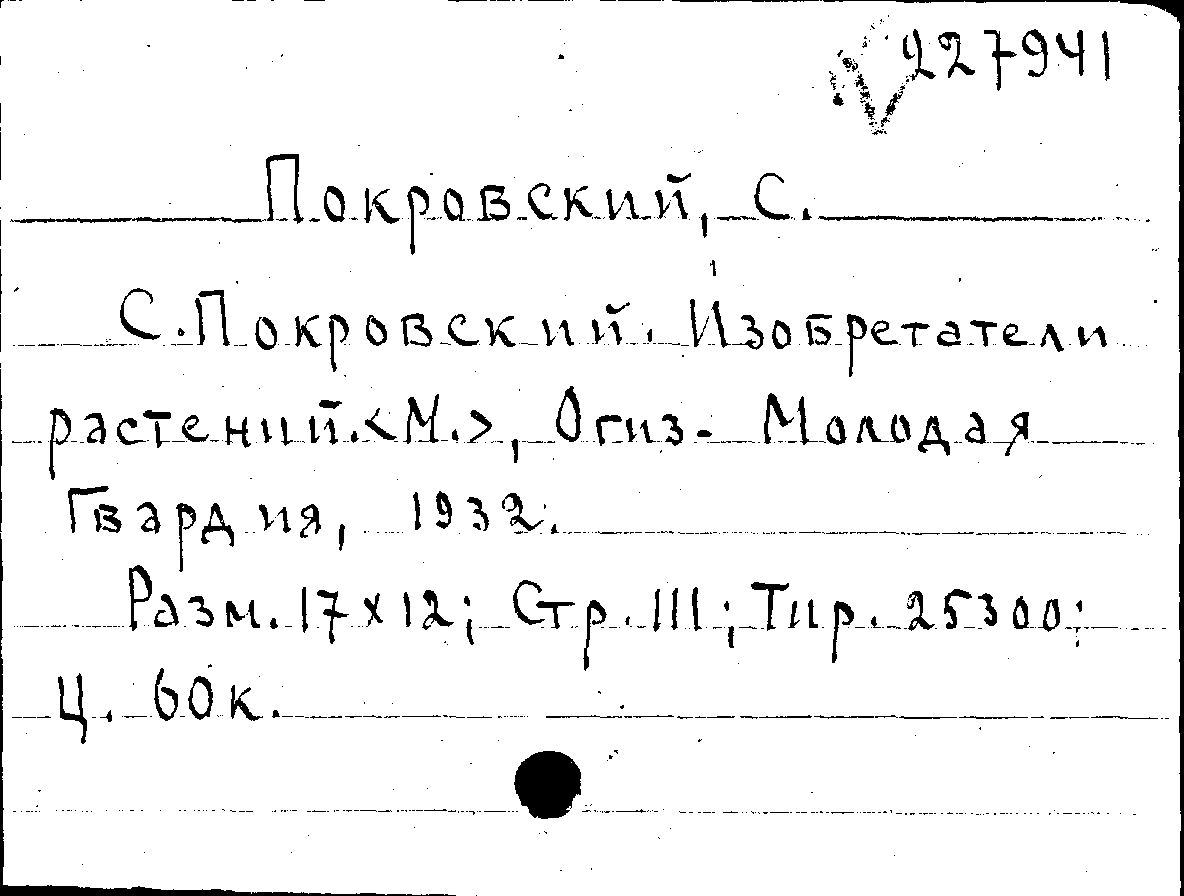 227941
Покровский, С.
С. Покровский. Изобретатели
растений. <М.>, Огиз - Молодая
Гвардия, 1932.
Разм. 17x12; Стр. 111; Тир. 25300;
Ц. 60к.